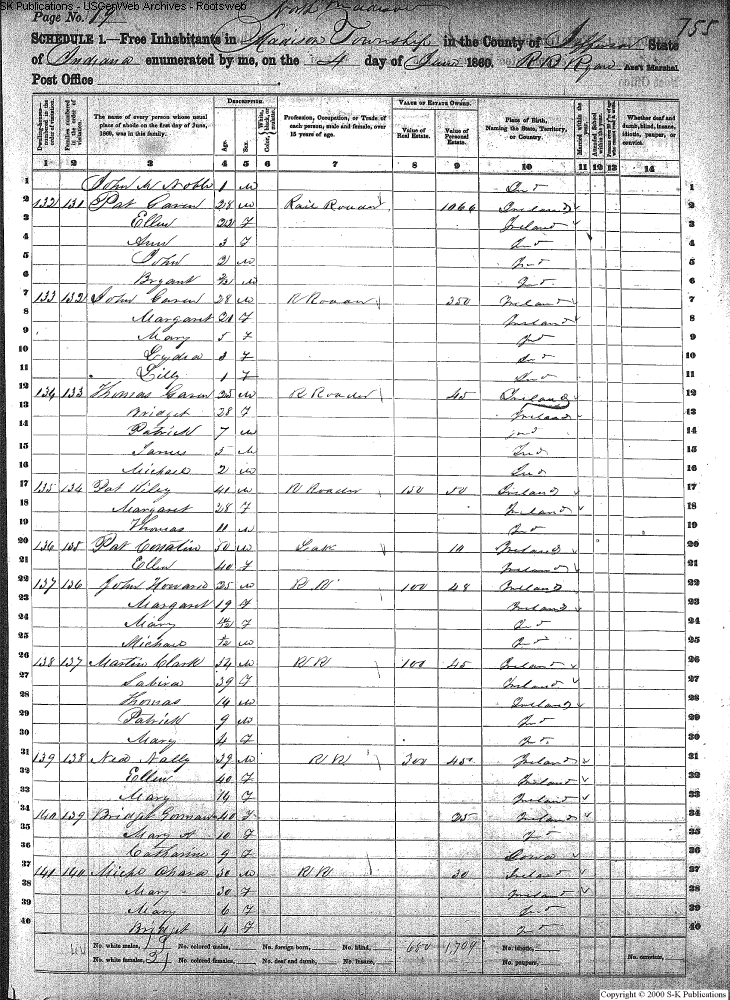 S-K Publications - USGenWeb Archives - Rootsweb
North Madison
Page No. 19
755
SCHEDULE 1.—Free Inhabitants in Madison Township in the County of Jefferson State
of Indiana enumerated by me, on the 4 day of June 1860. R B Ryan Ass't Marshal
Post Office
DESCRIPTION. VALUE OF ESTATE OWNED.
Dwelling-houses—numbered in the order of visitation. Families numbered in the order of visitation. The name of every person whose usual place of abode on the first day of June, 1860, was in this family. Age. Sex. Color, White, black, or mulatto. Profession, Occupation, or Trade of each person, male and female, over 15 years of age. Value of Real Estate. Value of Personal Estate. Place of Birth, Naming the State, Territory, or Country. Married within the year. Whether deaf and dumb, blind, insane, idiotic, pauper, or convict.
1 2 3 4 5 6 7 8 9 10 11 12 13 14
1 John W Noble 1 M Ind 1
2 132 131 Pat Caren 28 M Rail Roader 1066 Ireland 2
3 Ellen 23 F Ireland 3
4 Ann 3 F Ind 4
5 John 2 M Ind 5
6 Bryant M Ind 6
7 133 132 John Caren 28 M R Roader 350 Ireland 7
8 Margaret 21 F Ireland 8
9 Mary 5 F Ind 9
10 Lydia 3 F Ind 10
11 Lilly 1 F Ind 11
12 134 133 Thomas Caren 25 M R Roader 45 Ireland 12
13 Bridget 28 F Ireland 13
14 Patrick 7 M Ind 14
15 James 5 M Ind 15
16 Michael 2 M Ind 16
17 135 134 Pat Riley 41 M R Roader 150 50 Ireland 17
18 Margaret 28 F Ireland 18
19 Thomas 11 M Ind 19
20 136 135 Pat 50 M 10 Ireland 20
21 Ellen 40 F Ireland 21
22 137 136 John Howard 25 M R R 100 48 Ireland 22
23 Margaret 19 F Ireland 23
24 Mary F Ind 24
25 Michael M Ind 25
26 138 137 Martin Clark 34 M R R 100 45 Ireland 26
27 Sabina 39 F Ireland 27
28 Thomas 14 M Ireland 28
29 Patrick 9 M Ind 29
30 Mary 4 F Ind 30
31 139 138 Ned Nally 39 M R R 300 45 Ireland 31
32 Ellen 40 F Ireland 32
33 Mary 14 F Ireland 33
34 140 139 Bridget Gorman 40 F 25 Ireland 34
35 Mary A 10 F Ind 35
36 Catharine 9 F Iowa 36
37 141 140 Michl Ohara 30 M R R 30 Ireland 37
38 Mary 30 F Ireland 38
39 Mary 6 F Ind 39
40 Bridget 4 F Ind 40
No. white males, 19 No. colored males, No. foreign born, No. blind, 650 1,709 No. idiotic,
No. white females, 21 No. colored females, No. deaf and dumb, No. insane, No. paupers, No. convicts,
Copyright © 2000 S-K Publications